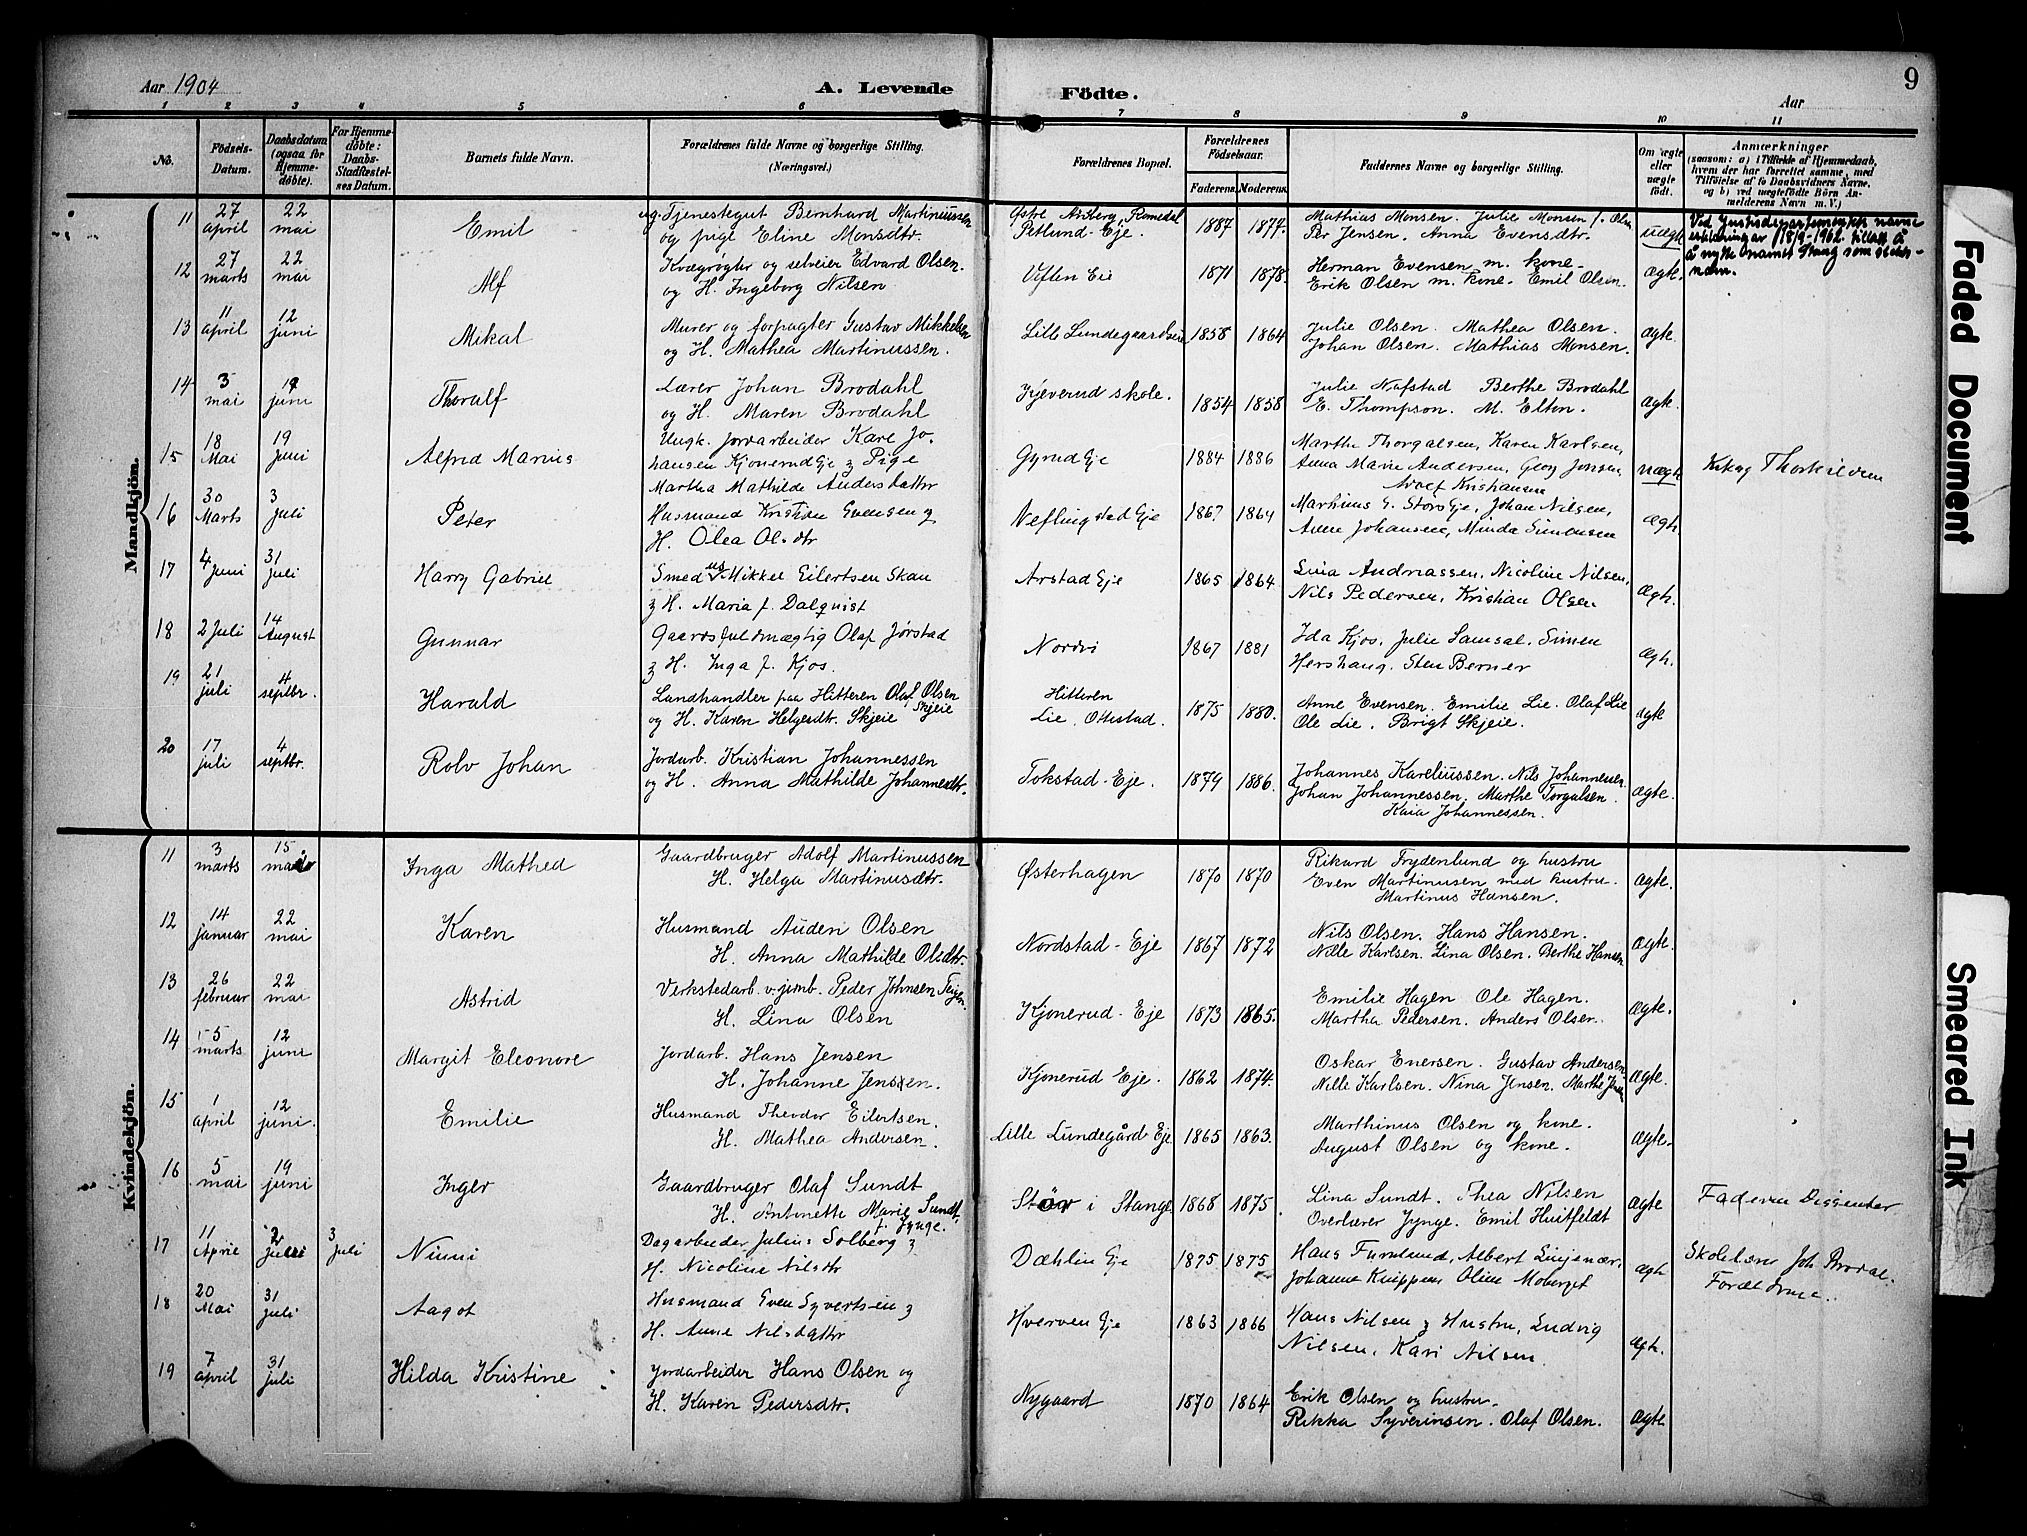 Aar 1904
A. Levende Födte.
Aar
9
1 2 3 4 5 6 7 8 9 10 11
No.
Födsels-Datum.
Daabsdatum (ogsaa for Hjemme-døbte).
For Hjemme-døbte: Daabs-Stadfæstel-ses Datum.
Barnets fulde Navn.
Forældrenes fulde Navne og borgerlige Stilling.
(Næringsvei.)
Forældrenes Bopæl.
Forældrenes Fødselsaar.
Faderens. Moderens.
Faddernes Navne og borgerlige Stilling.
Om ægte eller uægte født.
Anmærkninger
(saasom: a) i Tilfælde af Hjemmedaab,
hvem der har forrettet samme, med
Tilføielse af to Daabsvidners Navne,
og b) ved uægtefødte Börn An-
melderens Navn m. V.)
Mandkjön.
11 27 april 22 mai Emil
ug. Tjenestegut Bernhard Martinussen
og pige Eline Monsdtr.
Østre Arsberg, Romedal
Petlund-Eje. 1887 1877.
Mathias Monsen. Julie Monsen f. Olsen
Per Jensen. Anna Evensdtr. uægte
12 27 marts 22 mai Alf
Kvægrøgter og selveier Edvard Olsen.
og H. Ingeborg Nilsen
Uften Eie 1871 1878.
Herman Evensen m. kone-
Erik Olsen m. kone- Emil Olsen. ægte.
13 11 april 12 juni Mikal
Murer og forpagter Gustav Mikkelsen
og H. Mathea Martinussen.
Lille Lundegaard eie 1858 1864
Julie Olsen. Mathea Olsen.
Johan Olsen. Mathias Monsen. ægte.
14 3 mai 19 juni Thoralf
Lærer Johan Brodahl
og H. Maren Brodahl
Kjeverud skole. 1854 1858
Julie Nafstad Berthe Brodahl
E. Thompson. M. Elton. ægte.
15 18 Mai 19 juni Alfred Marius
Ungk. Jordarbeider Karl Jo-
hansen Kjonerud Eje & Pige
Martha Mathilde Andersdatter
Gyrud Eje 1884 1886
Marthe Thorgalsen, Karen Karlsen,
Anna Marie Andersen, Georg Jonsen,
Adolf Kristiansen uægte
Thorkildsen
16 30 Marts 3 juli Peter
Husmand Kristian Evensen &
H. Olea Olsdtr
Neflingstad Eje 1867 1864
Martinius E. Stors Eje, Johan Nilsen,
Anne Johansen, Minda Simensen ægte.
17 4 juni 31 juli Harry Gabriel
Smedus Mikkel Eilertsen Skau
& H. Maria f. Dalquist
Arstad Eje 1865 1864
Lina Andreassen, Nicoline Nilsen,
Nils Pedersen, Kristian Olsen ægte.
18 2 juli 14 August Gunnar
Gaardsfuldmægtig Olaf Jørstad
& H. Inga f. Kjos.
Nordvi 1867 1881
Ida Kjos, Julie Samsal, Simen
Hershaug, Sten Berner ægte.
19 21 juli 4 septbr. Harald
Landhandler paa Hitteren Olaf Olsen Skjeie
og H. Karen Helgesdtr. Skjeie
Hitteren
Lie. Ottestad. 1875 1880.
Anne Evensen. Emilie Lie. Olaf Lie
Ole Lie. Brigt Skjeie. ægte
20 17 juli 4 septbr. Rolv Johan
Jordarb. Kristian Johannessen
og H. Anna Mathilde Johannesdtr.
Tokstad-Eje. 1879 1886.
Johannes Kareliussen. Nils Johannessen
Johan Johannessen. Marthe Torgalsen.
Kaia Johannessen. ægte.
Kvindekjön.
11 3 marts 15 mai Inga Mathea
Gaardbruger Adolf Martinussen
H. Helga Martinusdtr.
Østerhagen 1870 1870
Rikard Frydenlund og hustru
Even Martinusen med hustru.
Martinus Hansen. ægte.
12 14 januar 22 mai Karen
Husmand Auden Olsen
H. Anna Mathilde Olsdtr.
Nordstad-Eje 1867 1872
Nils Olsen. Hans Hansen.
Nille Karlsen. Lina Olsen. Berthe Hansen ægte.
13 26 februar 22 mai Astrid
Verkstedarb. v. jernb. Peder Johnsen Teigen
H. Lina Olsen
Kjonerud-Eje 1873 1865.
Emilie Hagen Ole Hagen.
Martha Pedersen. Anders Olsen. ægte.
14 5 marts 12 juni Margit Eleonore
Jordarb. Hans Jensen
H. Johanne Jensen.
Kjonerud Eje. 1862 1874.
Oskar Enersen. Gustav Andersen
Nille Karlsen. Nina Jensen. Marthe ægte.
15 1 april 12 juni. Emilie
Husmand Theodor Eilertsen.
H. Mathea Andersen.
Lille Lundegård Eje 1865 1863.
Marthinus Olsen og kone.
August Olsen og kone. ægte.
16 5 mai 19 juni Inger
Gaardbruger Olaf Sundt
H. Antonette Marie Sundt,
f. Jynge.
Stör i Stange 1868 1875
Lina Sundt. Thea Nilsen
Overlærer Jynge. Emil Huitfeldt ægte
Faderen Dissenter
17 11 Aprie 2 juli 3 juli Ninni
Dagarbeider Julius Solberg &
H. Nicoline Nilsdtr
Dæhlin Eje 1875 1875
Hans Furulund, Albert Linjenær,
Johanne Knippen Oline Moberget ægte
Skolelærer Joh Brodal.
18 20 Mai 31 juli Aagot
Husmand Even Syvertsen &
H. Anne Nilsdatter
Hverven Eje 1863 1866
Hans Nilsen & Hustru, Ludvig
Nilsen, Kari Nilsen ægte.
19 7 april 31 juli Hilda Kristine
Jordarbeider Hans Olsen og
H. Karen Pedersdtr.
Nygaard 1870 1864
Erik Olsen og hustru.
Rikka Syverinsen. Olaf Olsen. ægte
Faded Document
Smeared Ink